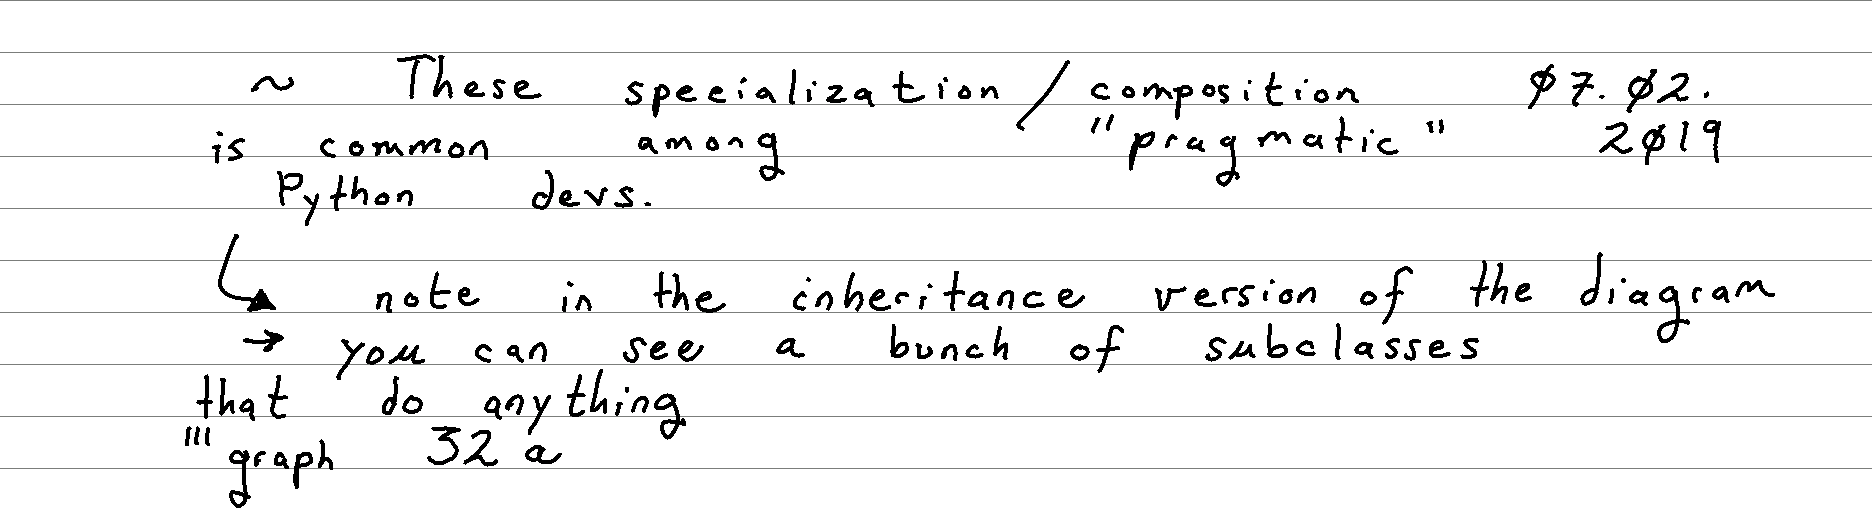 ~ These specialization / composition 07.02.
is common among "pragmatic" 2019
Python devs.
note in the inheritance version of the diagram
→ you can see a bunch of subclasses
that do anything
"' graph 32 a